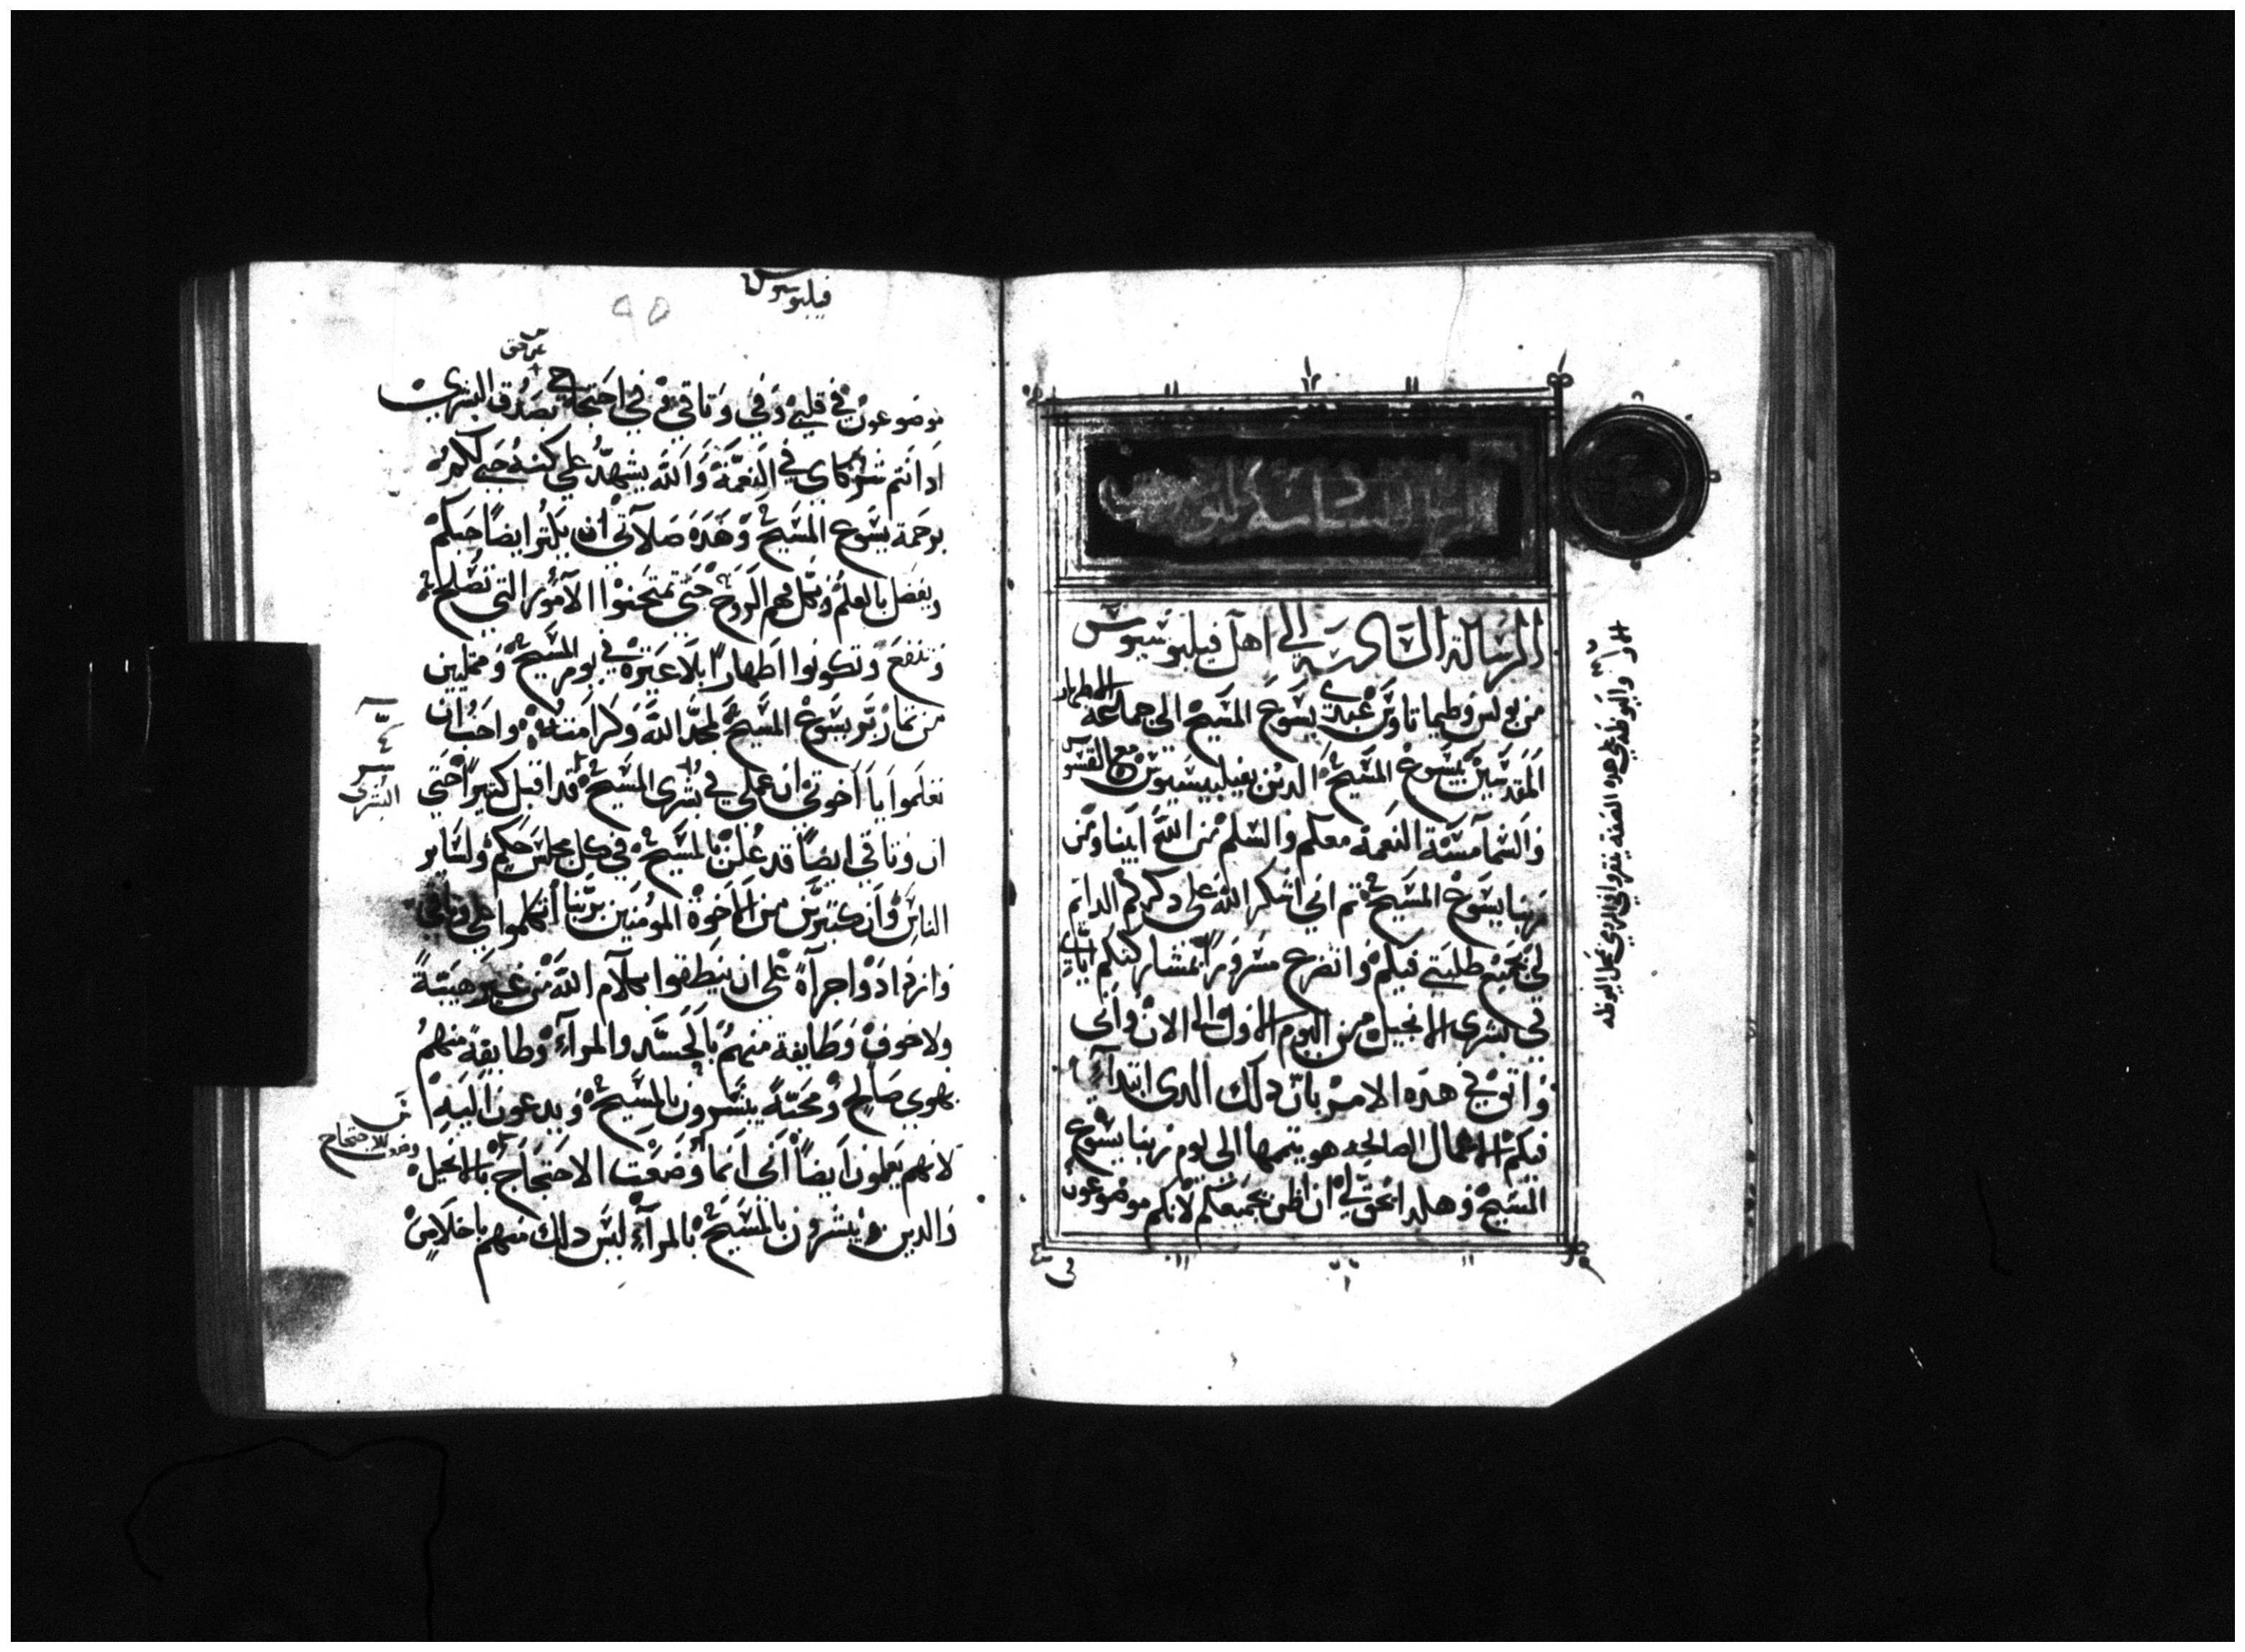 الرسالة السادسة الى اهل فيلبوسيوس
من بولس وطيماتاوس عبدي يسوع المسيح الى جماعة الاطهار
المقدسين بيسوع المسيح الدين بفيلبيسيوس مع القسوس
والشمامسة النعمة معكم والسلم من الله ابينا ومن
ربنا يسوع المسيح ثم اني اشكر الله على دكركم الدايم
في جميع طلبتي فيكم وانضرع مسرورا بمشاركتكم اياي
في بشرى الانجيل من اليوم الاول الى الان واني
واثق في هده الامر بان دلك الدى ابتدا
فيكم الاعمال الصالحه هو يتممها الى يوم ربنا يسوع
المسيح وهكدا يحق لي ان اظن بجميعكم لانكم موضوعون
فيلبوسيوس
موضوعون في قلبي وفي وتاقي وفي احتجاجي بصدق البشرى
اد انتم شركاى في النعمة والله يشهد على كنه حبي لكم
برحمة يسوع المسيح وهده صلاتي ان يكثر ايضا حبكم
ويفضل بالعلم وبكل فهم الروح حتى تمتحنوا الامور التي تصلح
وتنفع وتكونوا اطهارا بلا عترة في يوم المسيح وممتليين
من ثمار بر يسوع المسيح لمجد الله وكرامته واحب ان
تعلموا يا اخوتي ان عملي في بشرى المسيح قد اقبل كثيرا حتى
ان وتاقي ايضا قد علن بالمسيح في كل مجلس حكم ولساير
الناس وان كثيرين من الاخوة المومنين بربنا اتكلوا على وتاقي
وازدادوا جراة على ان ينطقوا بكلام الله من غير هيبة
ولا خوف وطايفة منهم بالحسد والمراء وطايفة منهم
بهوى صالح ومحبة يبشرون بالمسيح ويدعون اليه
لانهم يعلمون ايضا اني انما وضعت الاحتجاج بالانجيل
والدين يبشرون بالمسيح بالمراء ليس دلك منهم باخلاص
البشرى